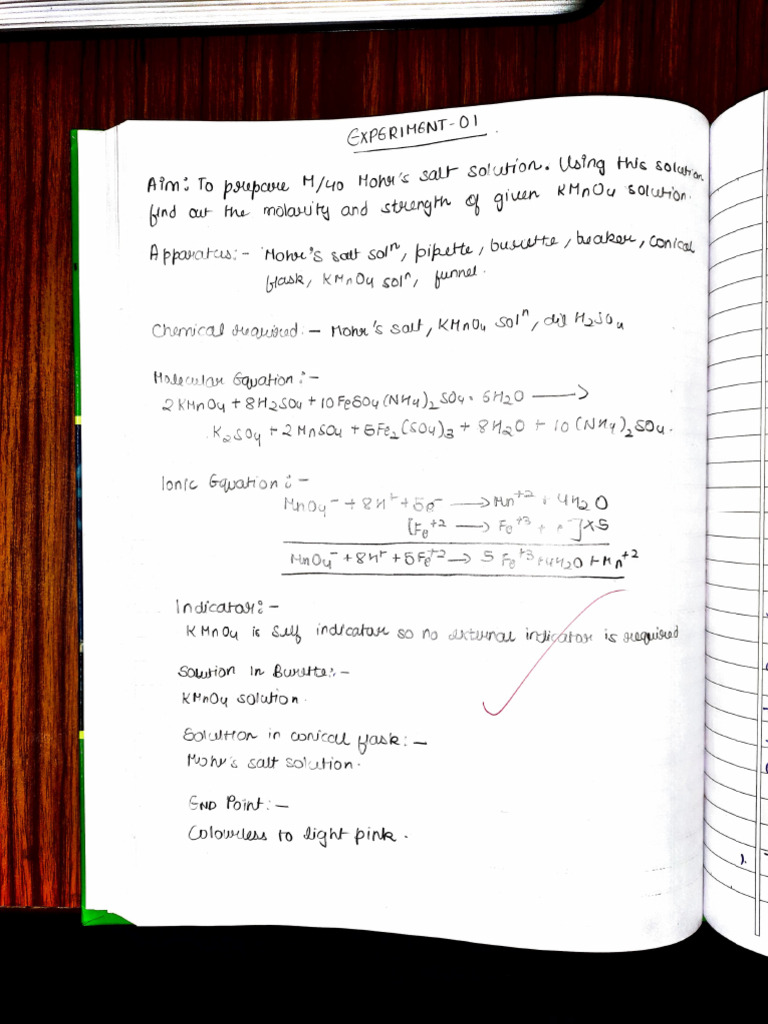 EXPERIMENT-01
Aim: To prepare M/40 Mohr's salt solution. Using this solution
find out the molarity and strength of given KMnO4 solution.
Apparatus:- Mohr's salt solⁿ, pipette, burette, beaker, conical
flask, KMnO4 solⁿ, funnel.
Chemical required:- Mohr's salt, KMnO4 solⁿ, dil H2SO4
Molecular Equation:-
2KMnO4 + 8H2SO4 + 10FeSO4(NH4)2SO4.6H2O ⟶
K2SO4 + 2MnSO4 + 5Fe2(SO4)3 + 8H2O + 10(NH4)2SO4.
Ionic Equation:-
MnO4⁻ + 8H⁺ + 5e⁻ ⟶ Mn⁺² + 4H2O
[Fe⁺² ⟶ Fe⁺³ + e⁻]×5
MnO4⁻ + 8H⁺ + 5Fe⁺² ⟶ 5Fe⁺³ + 4H2O + Mn⁺²
Indicator:-
KMnO4 is self indicator so no external indicator is required
Solution in Burette:-
KMnO4 solution.
Solution in conical flask:-
Mohr's salt solution.
END Point:-
Colourless to light pink.